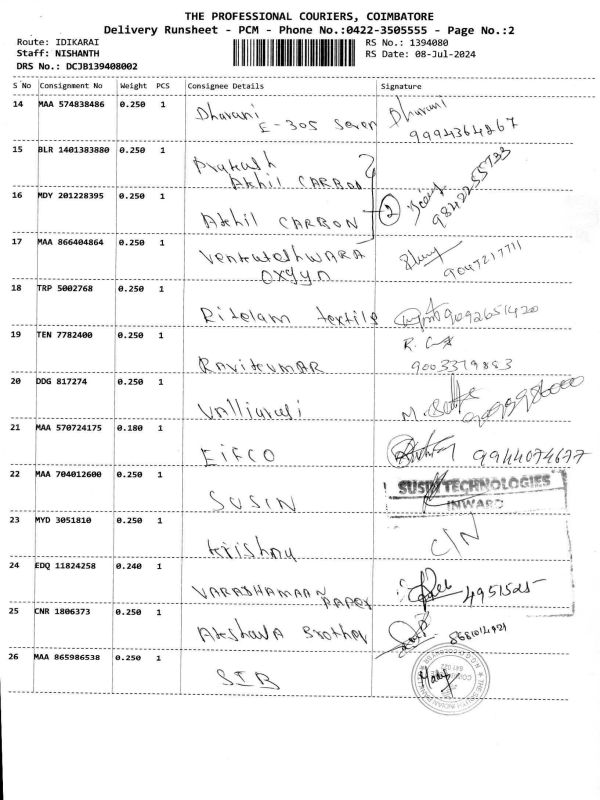 THE PROFESSIONAL COURIERS, COIMBATORE
Delivery Runsheet - PCM - Phone No.:0422-3505555 - Page No.:2
Route: IDIKARAI RS No.: 1394080
Staff: NISHANTH RS Date: 08-Jul-2024
DRS No.: DCJB139408002
S No Consignment No Weight PCS Consignee Details Signature
14 MAA 574838486 0.250 1 Dharani Dharani
E-305 Seven 9994364867
15 BLR 1401383880 0.250 1 Prakash
Akhil CARBON 9842255733
16 MDY 201228395 0.250 1 Akhil CARBON 2
17 MAA 866404864 0.250 1 Venkateshwara
oxgyn 9047217711
18 TRP 5002768 0.250 1 Ritelam textile 9092651420
19 TEN 7782400 0.250 1 Ravikumar R.
9003379883
20 DDG 817274 0.250 1 Valliarasi M.
21 MAA 570724175 0.180 1 EIFCO 9944074677
22 MAA 704012600 0.250 1 SUSIN SUSIN TECHNOLOGIES
INWARD
23 MYD 3051810 0.250 1 Krishna C/N
24 EDQ 11824258 0.240 1 VARADHAMAAN
PAPER 4951525
25 CNR 1806373 0.250 1 Akshaya Brother
26 MAA 865986538 0.250 1 STB